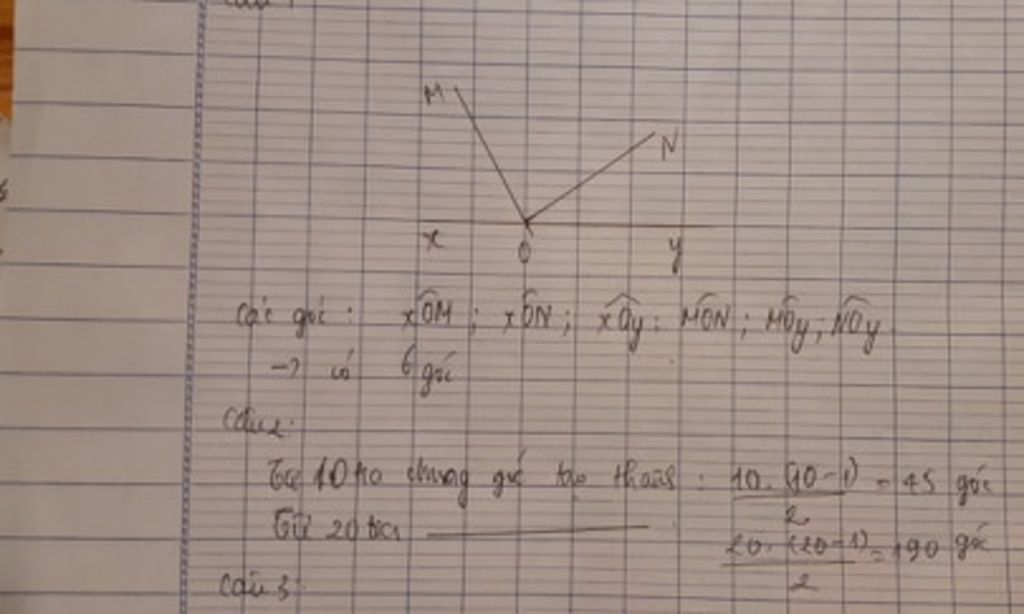 M
N
x O y
Các góc : xÔM ; xÔN ; xÔy : MÔN ; MÔy ; NÔy
→ có 6 góc
Câu 2:
Từ 10 tia chung gốc tạo thành : 10.(10-1)/2 = 45 góc
Từ 20 tia ———— 20.(20-1)/2 = 190 góc
Câu 3: